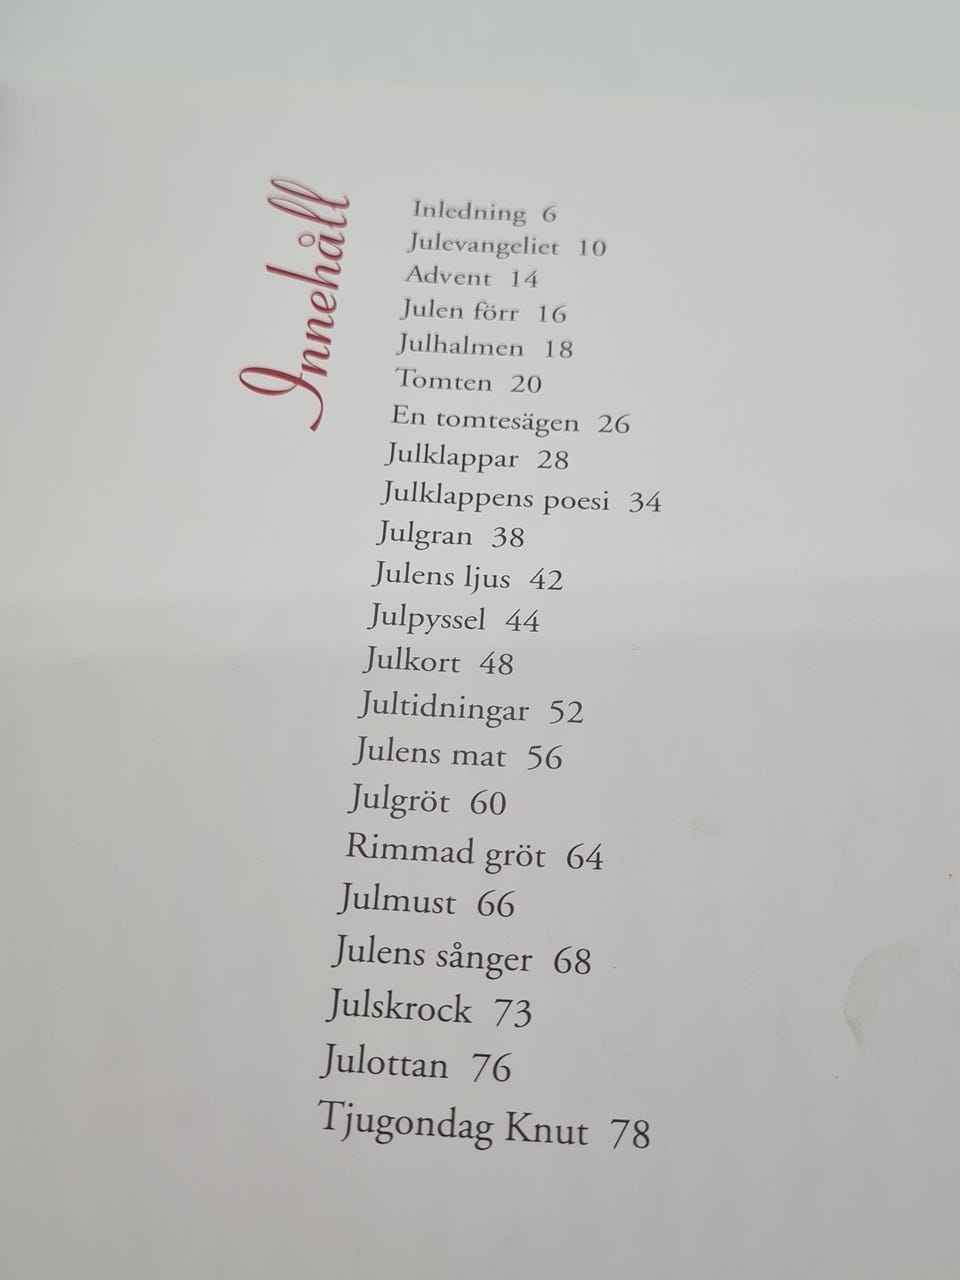 Innehåll
Inledning 6
Julevangeliet 10
Advent 14
Julen förr 16
Julhalmen 18
Tomten 20
En tomtesägen 26
Julklappar 28
Julklappens poesi 34
Julgran 38
Julens ljus 42
Julpyssel 44
Julkort 48
Jultidningar 52
Julens mat 56
Julgröt 60
Rimmad gröt 64
Julmust 66
Julens sånger 68
Julskrock 73
Julottan 76
Tjugondag Knut 78